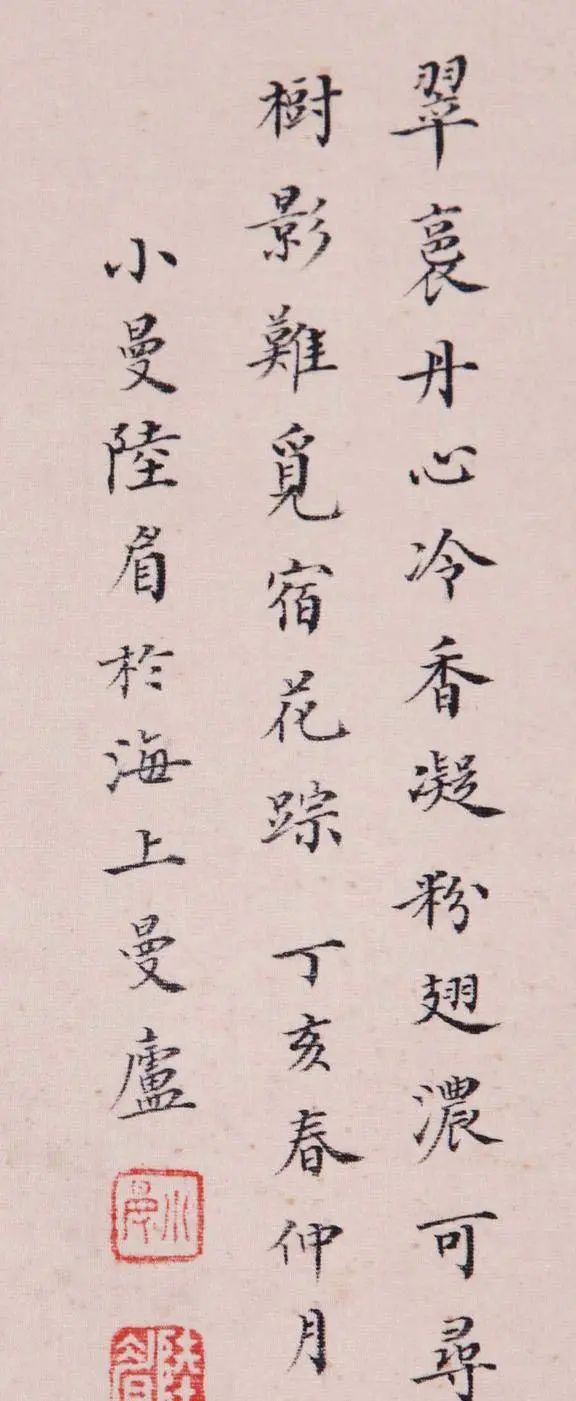 翠裛丹心冷香凝粉翅濃可尋
樹影難覓宿花踪 丁亥春仲月
小曼陸眉於海上曼廬
小曼
陸眉